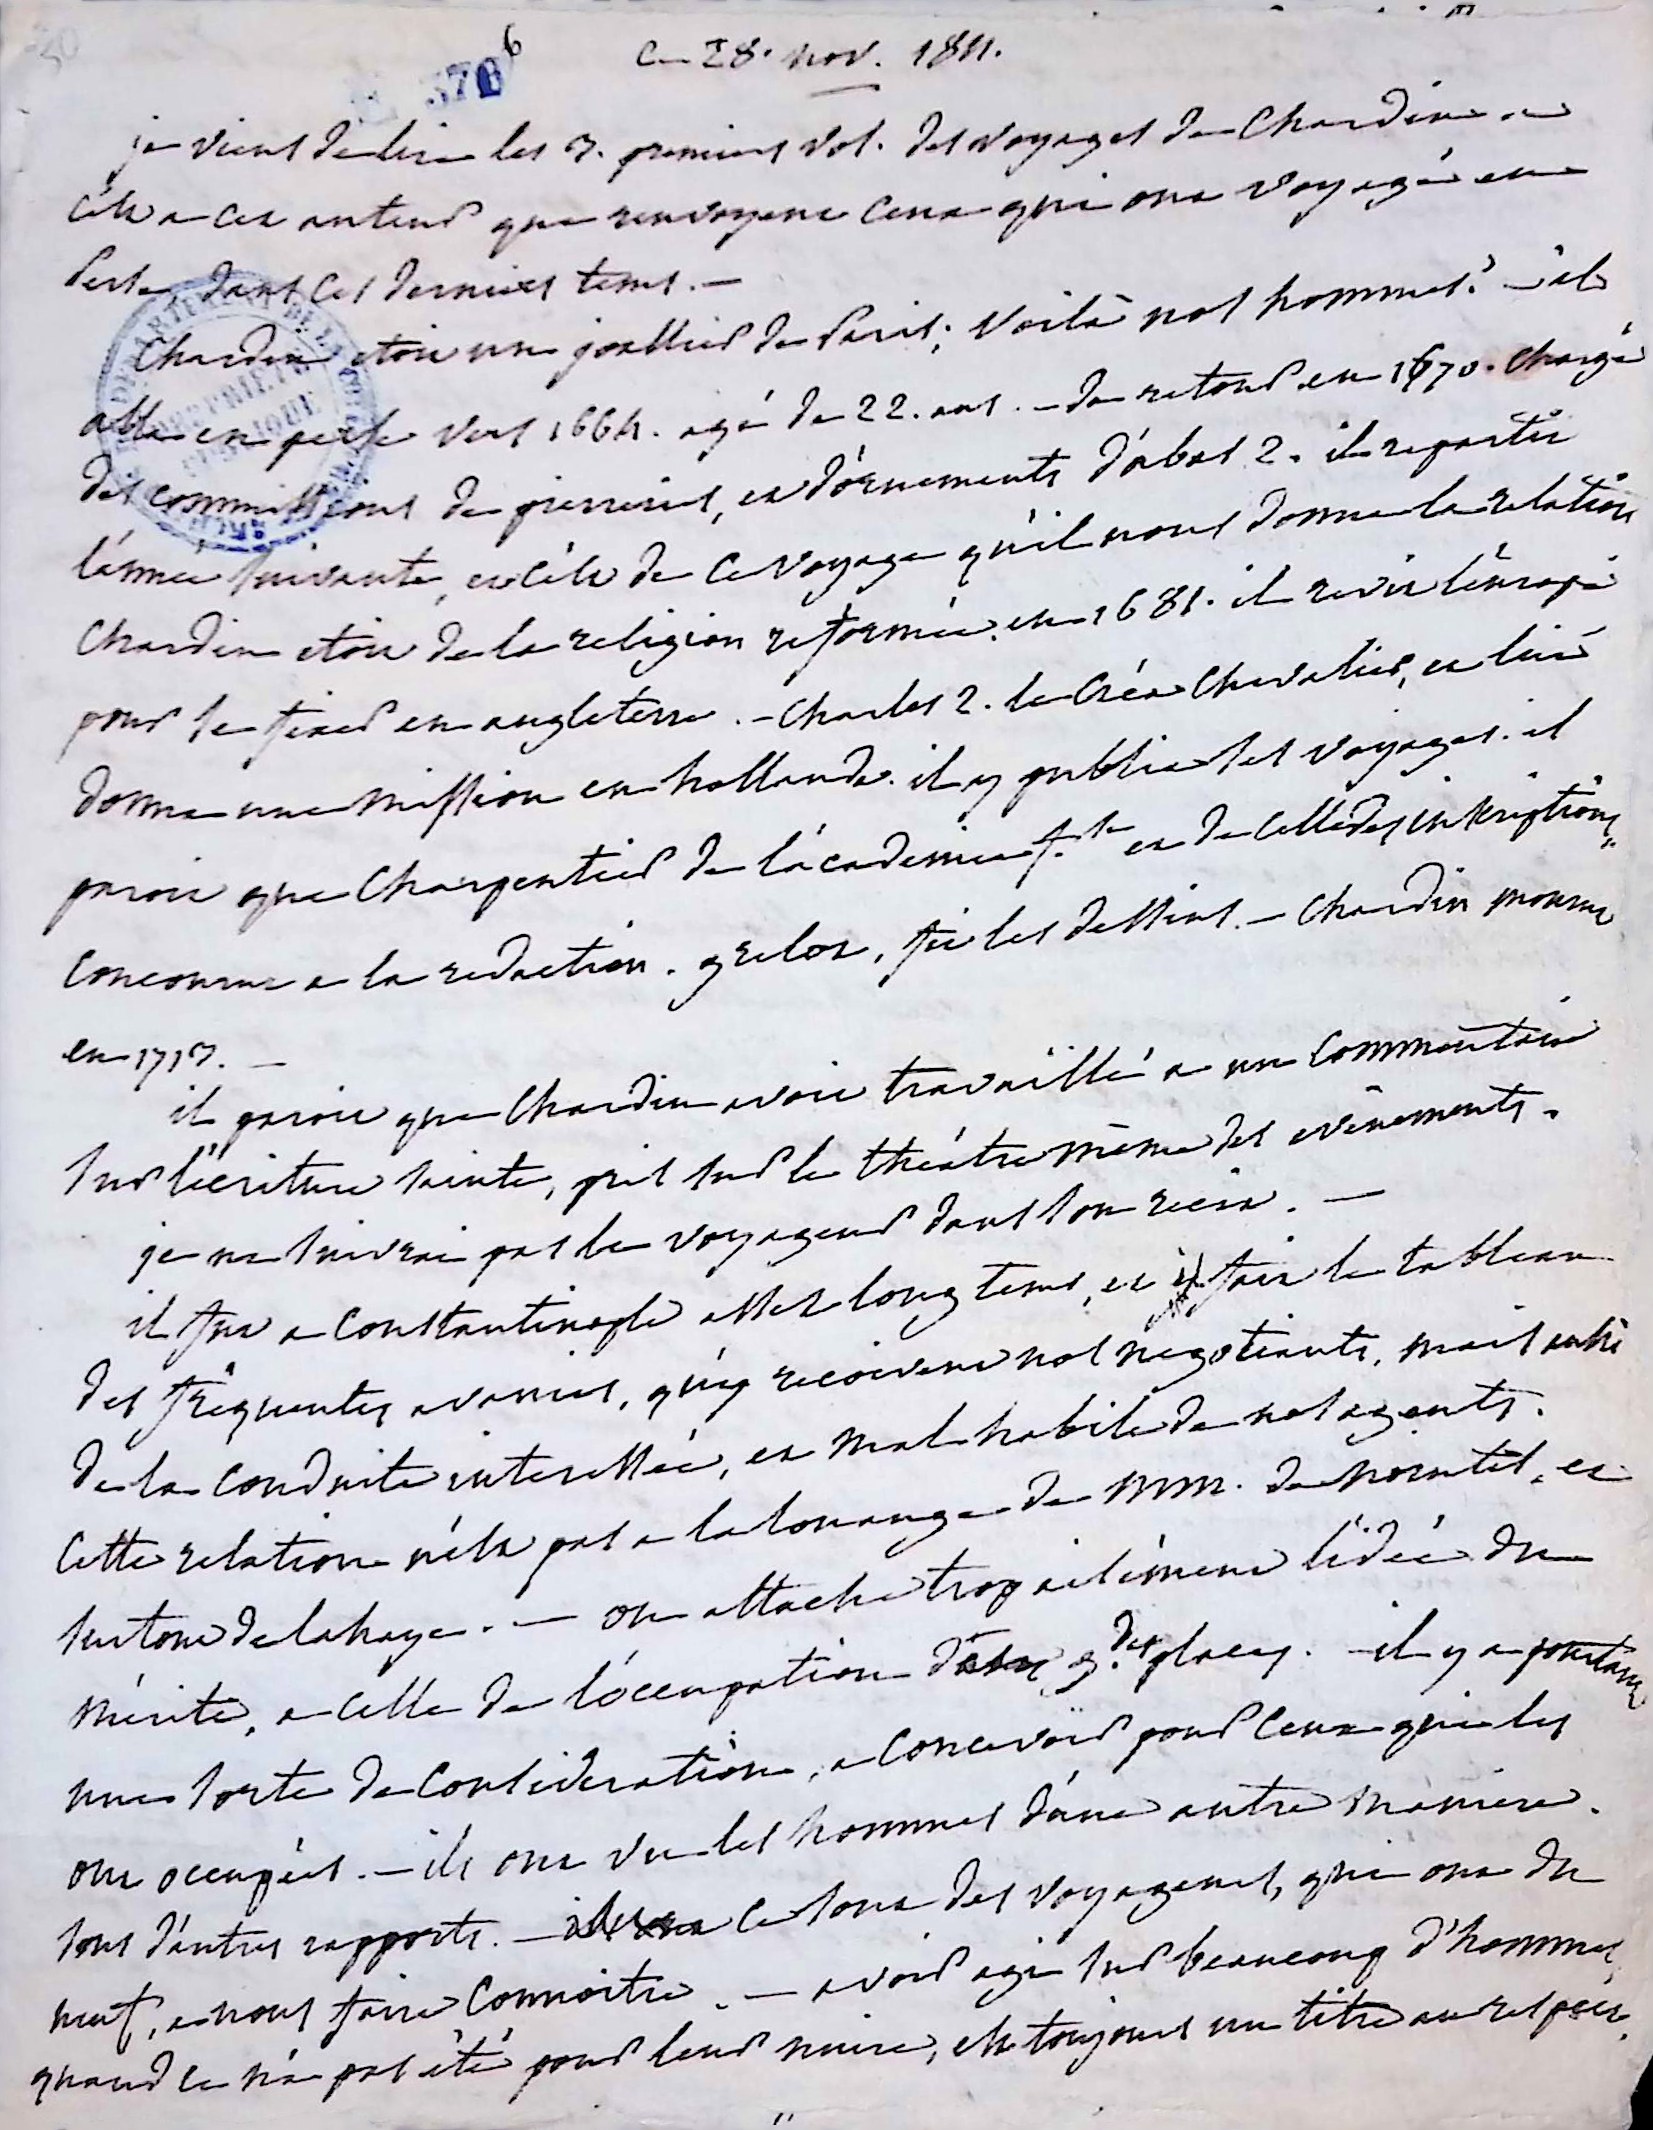 376 6
Ce 28. nov. 1811.
je viens de lire les 3. premiers vol. des voyages de Chardin. —
c'est a cet auteur que renvoyent ceux qui ont voyagé en
Perse, dans ces derniers tems. —
Chardin etoit un joallier de Paris; voilà nos hommes! — il
alla en perse vers 1664. agé de 22. ans. — de retour en 1670. chargé
des commissions de pierreries, et d'ornements d'abas 2. il repartit
l'année suivante, et c'est de ce voyage qu'il nous donne la relation
Chardin etoit de la religion reformée. en 1681. il revit l'europe
pour se fixer en angleterre. — Charles 2. le créa chevalier, et lui
donna une mission en hollande. il y publia ses voyages. il
paroit que Charpentier de l'académie f.se et de celle des inscriptions,
concourut a la redaction. grelot, fit les dessins. — Chardin mourut
en 1713. —
il paroit que Chardin avoit travaillé a un commentaire
sur l'écriture sainte, pris sur le théâtre même des evênements.
je ne suivrai pas le voyageur dans son recit. —
il fut a Constantinople assez long tems, et il fait le tableau
des fréquentes avanies, qu'y recoivent nos negotiants, mais aussi
de la conduite interessée, et mal habile de nos agents.
Cette relation n'est pas a la louange de MM. de Nointel, et
surtout de la haye. — on attache trop aisément l'idée du
mérite, a celle de l'occupation des g.des places. — il y a pourtant
une sorte de consideration, a concevoir pour ceux qui les
ont occupées. — ils ont vu les hommes d'une autre maniere.
sous d'autres rapports. — ce sont des voyageurs, qui ont du
neuf, a nous faire connoitre. — avoir agi sur beaucoup d'hommes,
quand ce n'a pas été pour leur nuire, est toujours un titre au respect.